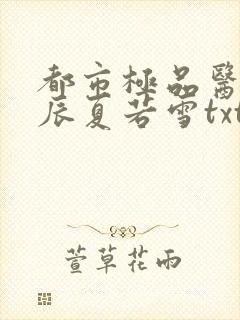 都市極品醫
辰夏若雪txt
萱草花雨